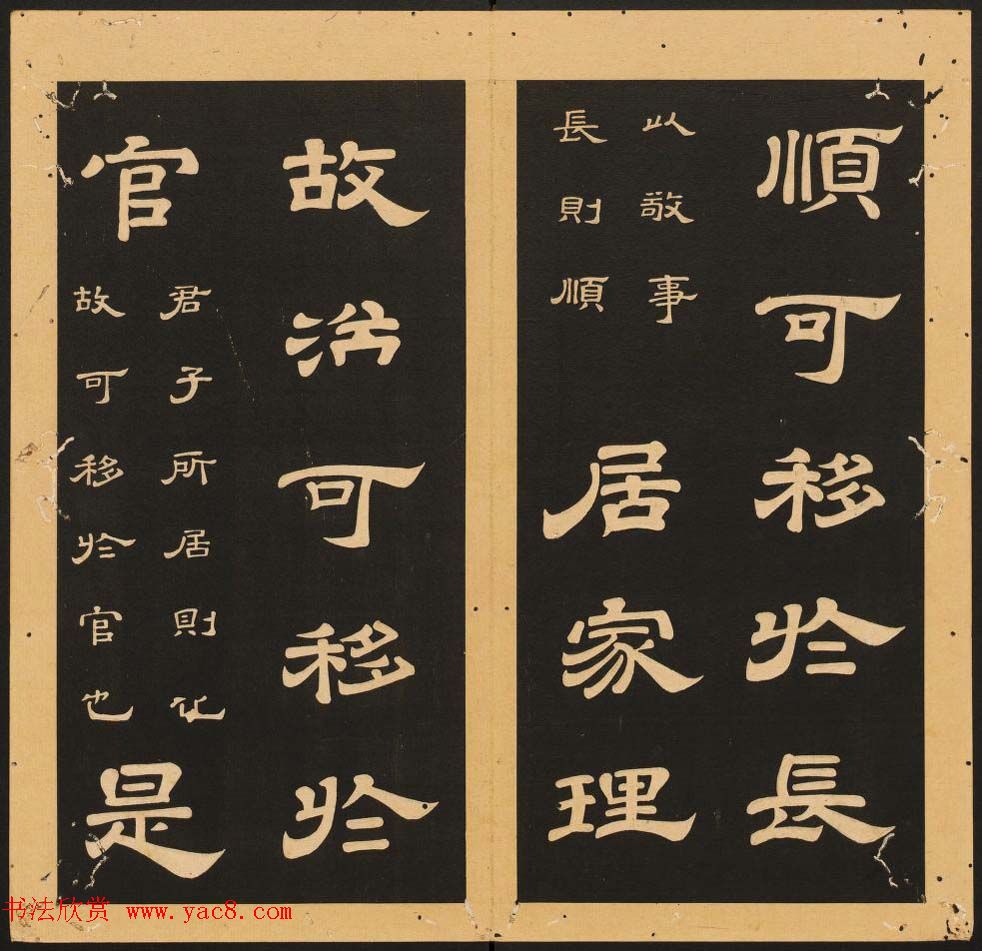 順可移於長
以敬事
長則順
居家理
故治可移於
官
君子所居則化
故可移於官也
是
书法欣赏 www.yac8.com